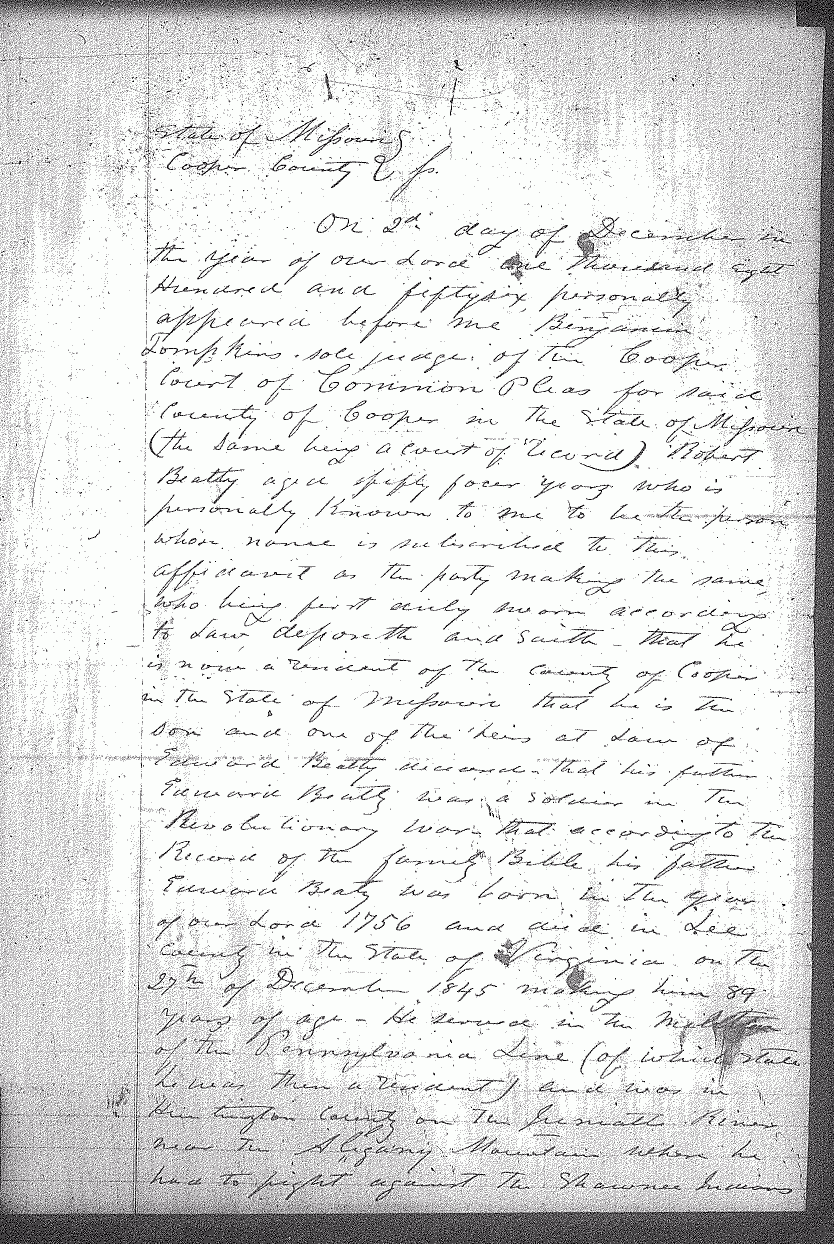 State of Missouri }
Cooper County } ss.
On 2d day of December in
the year of our Lord one thousand eight
Hundred and fiftysix, personally
appeared before me Benjamin
Tompkins sole judge of the Cooper
Court of Common Pleas for said
County of Cooper in the State of Missouri
(the same being a court of Record) Robert
Beatty aged fifty four years who is
personally known to me to be the person
whose name is subscribed to this
affidavit as the party making the same,
who being first duly sworn according
to Law deposeth and saith - that he
is now a resident of the County of Cooper
in the State of Missouri that he is the
son and one of the heirs at Law of
Edward Beatty deceased - that his father
Edward Beatty was a soldier in the
Revolutionary war, that according to the
Record of the family Bible his father
Edward Beaty was born in the year
of our Lord 1756 and died in Lee
County in the State of Virginia on the
27th of December 1845 making him 89
years of age - He served in the
of the Pennsylvania Line (of which state
he was then a resident) and was in
Huntington County on the Juniatta River
near the Aligany Mountain where he
had to fight against the Shawnee Indians